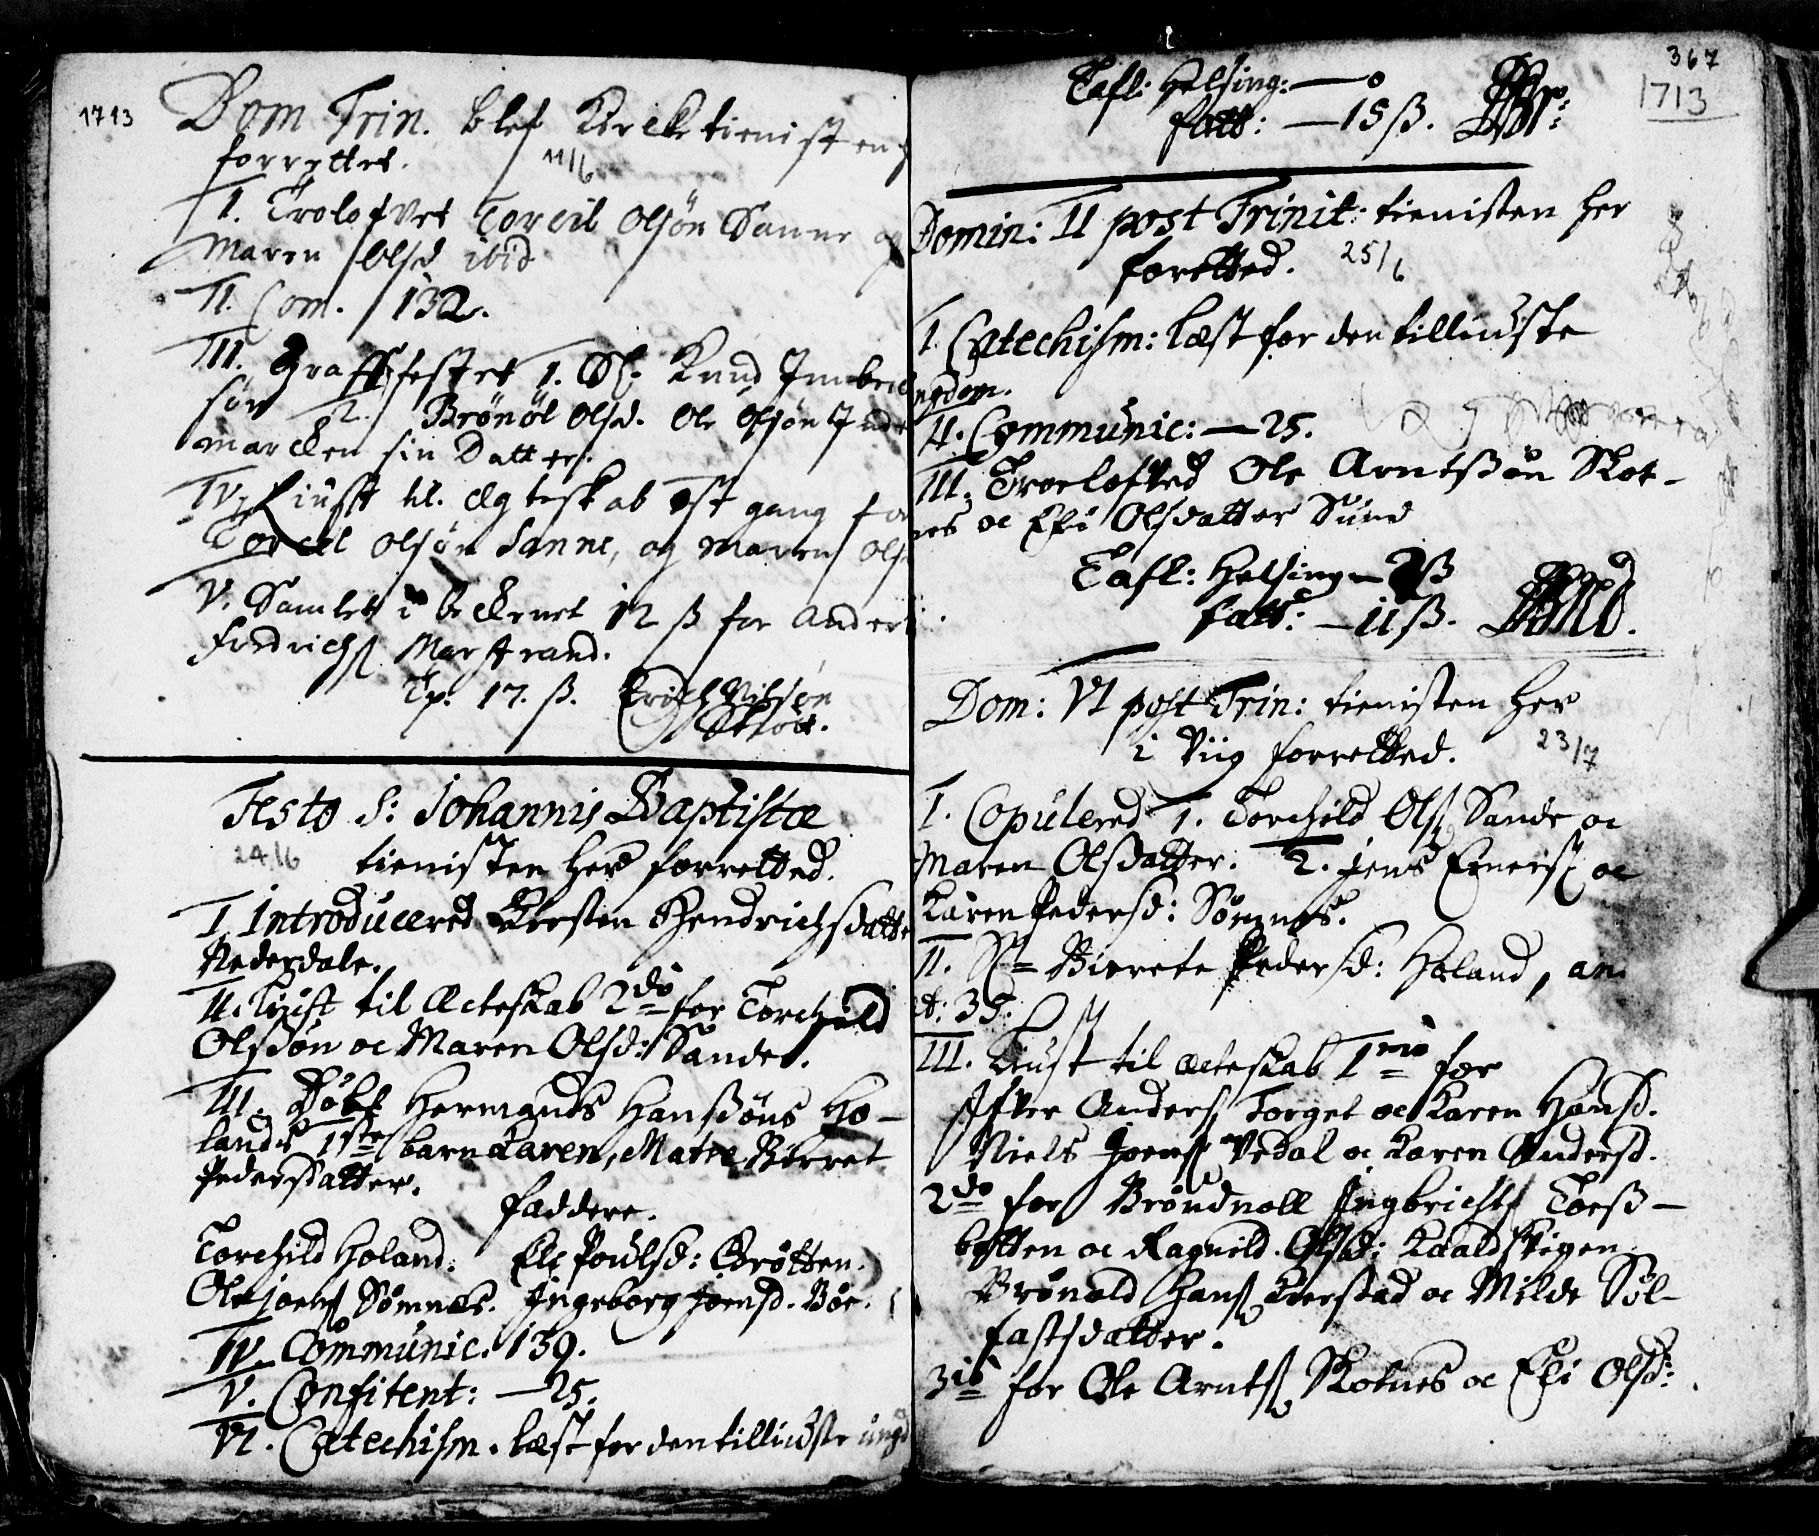 1713
Dom Trin. blef Kircketienisten
forrettet. 11/6
I. Trolofvet Torcil Olsøn Sanne og
Maren Olsd ibid
II. Com. 132.
III. Graffestet 1. S. Knud Imbrich
søn 2. Brønøl Olsd. Ole Olsøn
marcken sin Datter.
IV. Liust til Ægteskab 1st gang for
Torcel Olsøn Sanne, og Maren Ols
V. Samlet i beckenet 12 ß for Anders
Fridrichs Marstrand.
Tp. 17. ß. Erich Nilsøn
Festo S: Johannis Baptistæ
24/6 tienisten her forretted.
I. Introducered Kirsten Hendrichsdatte
Nederdale.
II. Liust til Ecteskab 2do for Torchild
Olsøn oc Maren Olsd: Sande.
III. Døbt Hermands Hansøns Ho-
lands 1ste barn Karen, Mater Birret
Pedersdatter.
Faddere.
Torchild Holand. Ele Poulsd: Brøtten.
Ole Joens Sømnes. Ingeborg Joensd. Böe.
IV. Communic. 139.
V. Confitent: — 25.
VI. Catechism. læst for den tillidste ungd
367
1713
Tafl: Helsing: — 0
fatt: — 15 ß.
Domin: II post Trinit: tienisten her
foretted. 25/6
I. Catechism: læst for den tilliudste
ngdom.
II. Communic: — 25.
III. Troelofved Ole Arntsøn Skot-
nes oc Eli Olsdatter Sund
Tafl: Helsing — 2 ß
fatt: — 11 ß.
Dom: VI post Trin: tienisten her
i Viig forretted. 23/7
I. Copulered 1. Torchild Ols Sande oc
Maren Olsdatter. 2. Jens Eners oc
Karen Pedersd: Sømnes.
II. Birrete Pedersd: Holand, an
et: 35.
III. Liust til ecteskab 1mo for
Ifver Anders Torget oc Karen Hansd.
Niels Joens Vedal oc Karen Andersd.
2do for Brøndnoll Ingbrichts Torß-
botten oc Ragnild Olsd: Kaaldskigen
Brønold Hans Kierstad oc Milde Søl-
fastsdatter.
3io for Ole Arnts Skotnes oc Eli Olsd: